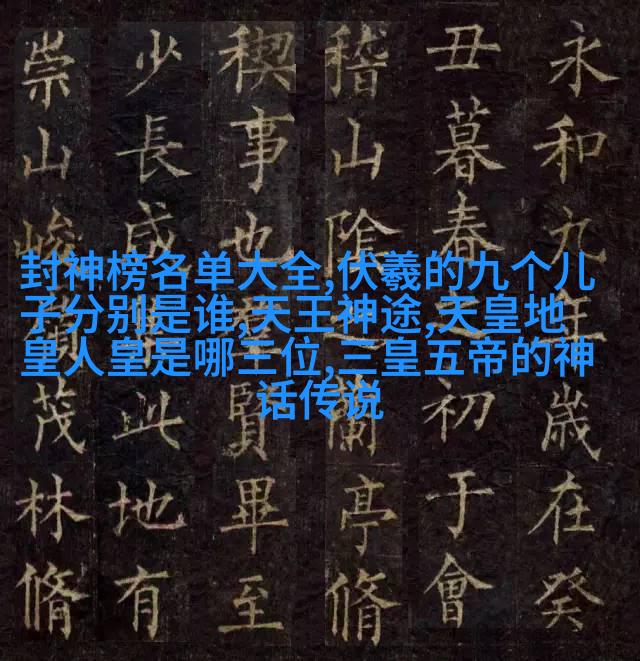 封神榜名单大全,伏羲的九个儿
子分别是谁,天王神途,天皇地
皇人皇是哪三位,三皇五帝的神
话传说
永和九年歲在癸
丑暮春初于會
稽山陰蘭亭脩
稧事也賢畢至
少長咸此地有
崇山峻領茂林脩